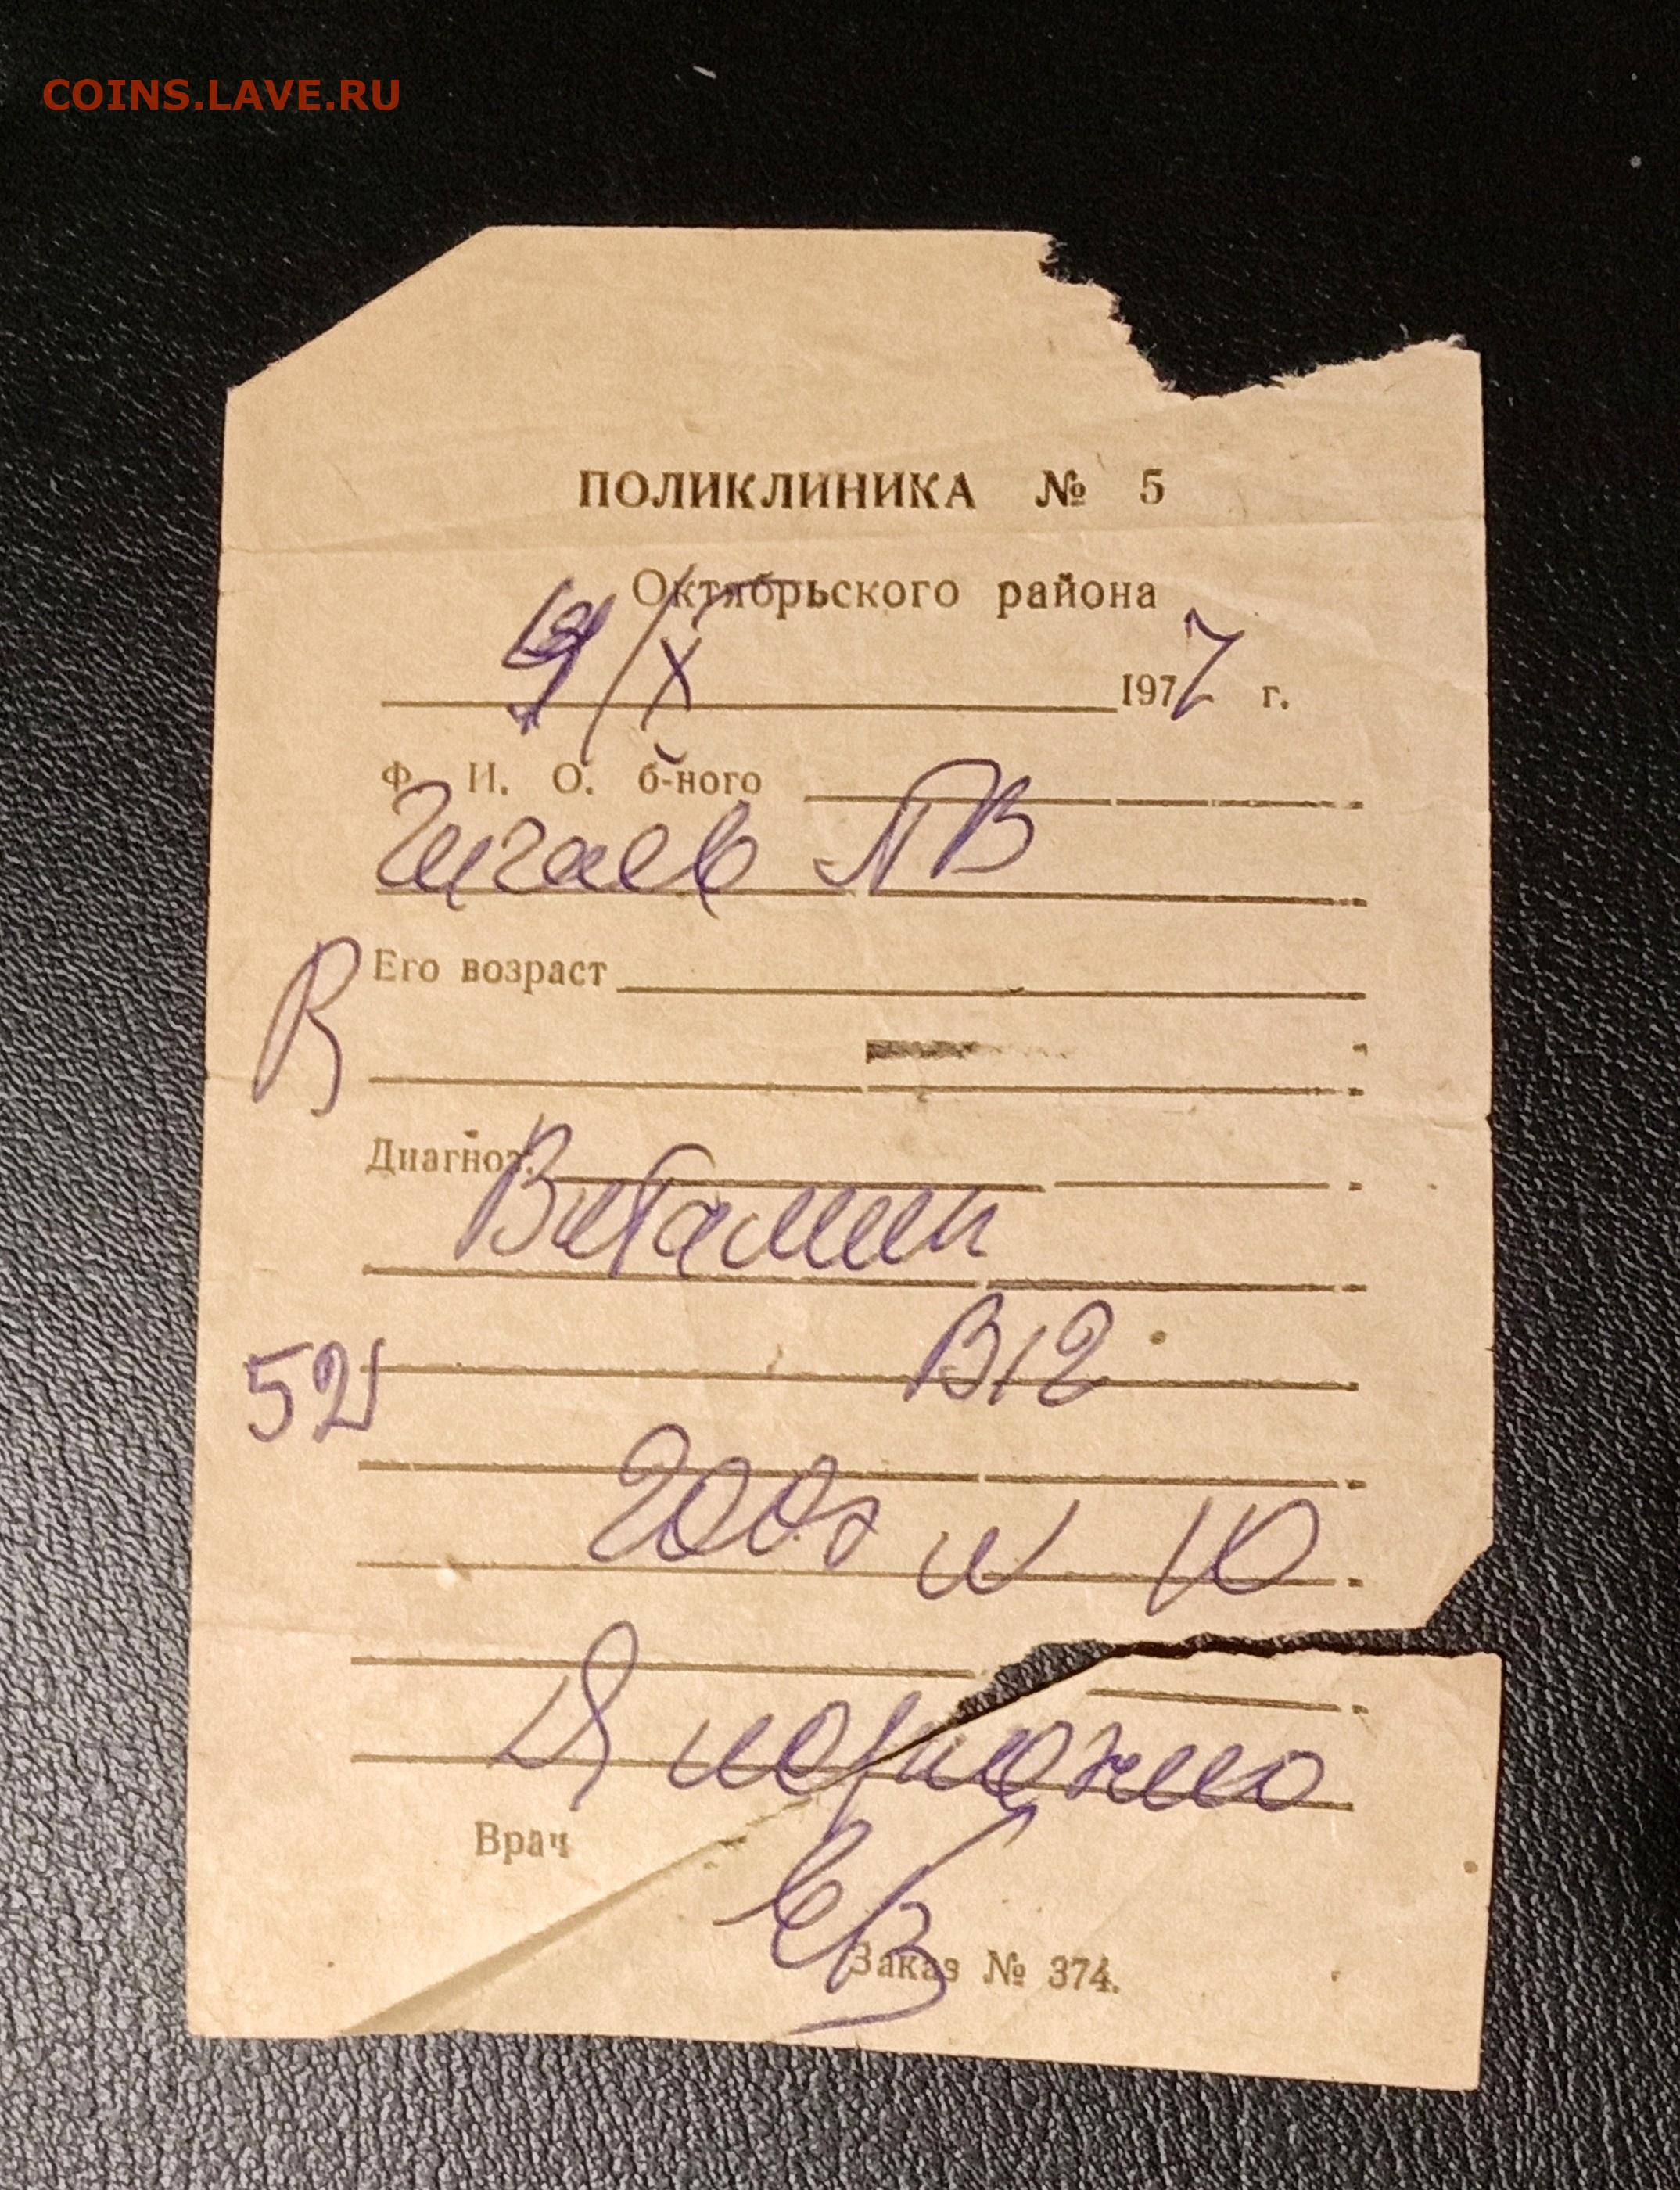 COINS.LAVE.RU
ПОЛИКЛИНИКА № 5
Октябрьского района
9/X 1977 г.
Ф. И. О. б-ного
Чигаев ПВ
Его возраст
Диагноз.
Витамин
B12
52
200γ N 10
Врач
Заказ № 374.